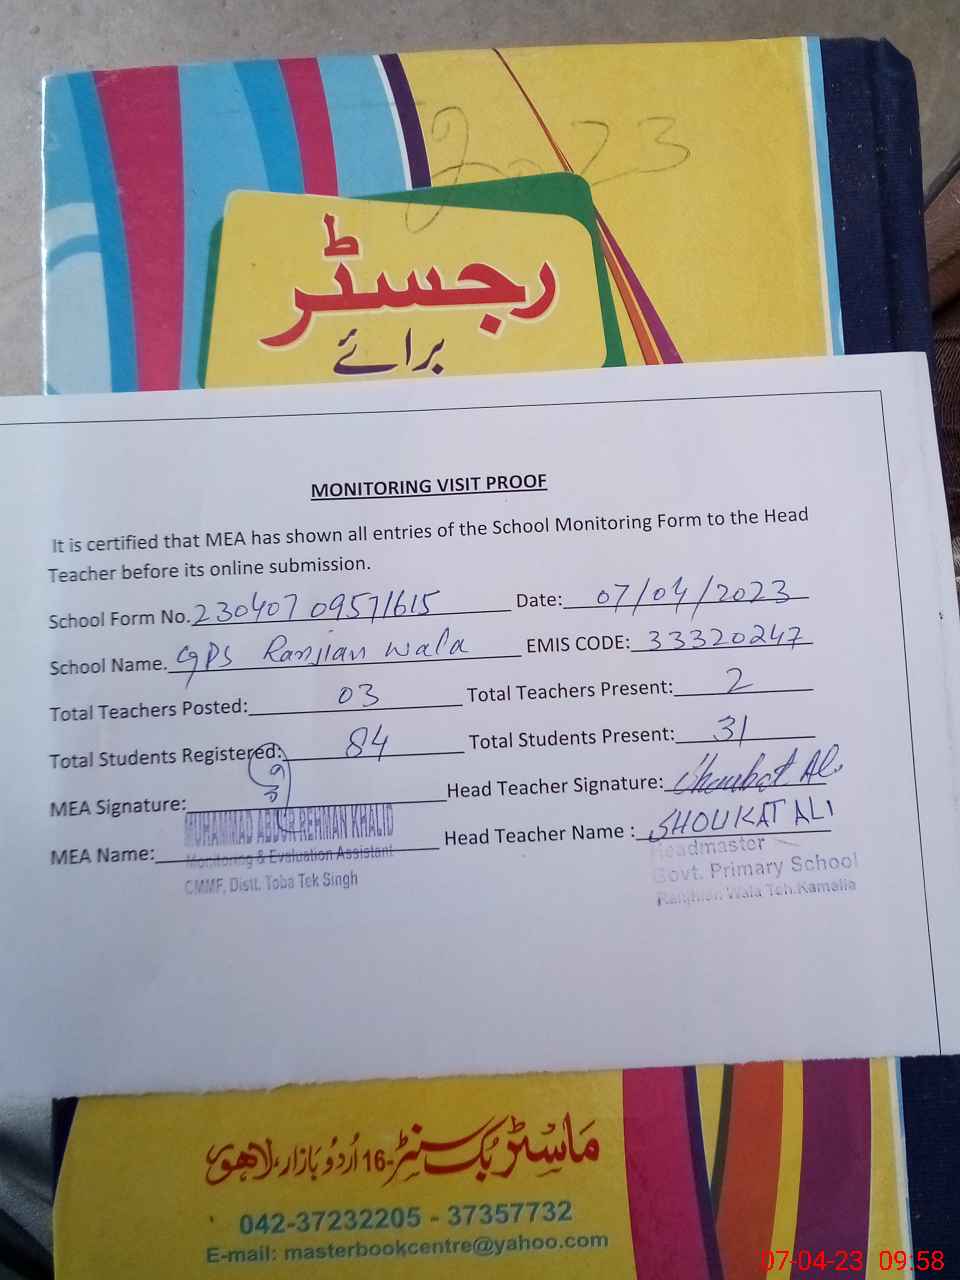 2023
رجسٹر
برائے
MONITORING VISIT PROOF
It is certified that MEA has shown all entries of the School Monitoring Form to the Head
Teacher before its online submission.
School Form No. 230407 09571615 Date: 07/04/2023
School Name. GPS Ranjian wala EMIS CODE: 33320247
Total Teachers Posted: 03 Total Teachers Present: 2
Total Students Registered: 84 Total Students Present: 31
MEA Signature: Head Teacher Signature: Shoukat Ali
MUHAMMAD ABDUR REHMAN KHALID
MEA Name: Head Teacher Name : SHOUKAT ALI
Monitoring & Evaluation Assistant
CMMF, Distt. Toba Tek Singh
Headmaster
Govt. Primary School
Ranjhian Wala Teh.Kamalia
ماسٹر بک سنٹر-16 اُردو بازار، لاہور
042-37232205 - 37357732
E-mail: masterbookcentre@yahoo.com
07-04-23 09:58